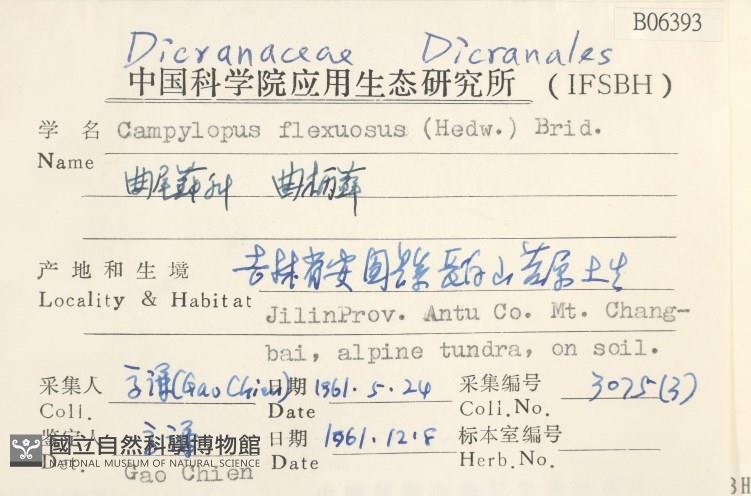 B06393
Dicranaceae Dicranales
中国科学院应用生态研究所 (IFSBH)
学名 Campylopus flexuosus (Hedw.) Brid.
Name
曲尾藓科 曲柄藓
产地和生境 吉林省安图县长白山苔原土生
Locality & Habitat
JilinProv. Antu Co. Mt. Chang-
bai, alpine tundra, on soil.
采集人 高谦(Gao Chien) 日期 1961.5.24 采集编号 3075(3)
Coll. Date Coll.No.
鉴定人 高谦 日期 1961.12.8 标本室编号
Det. Gao Chien Date Herb.No.
國立自然科學博物館
NATIONAL MUSEUM OF NATURAL SCIENCE
BH